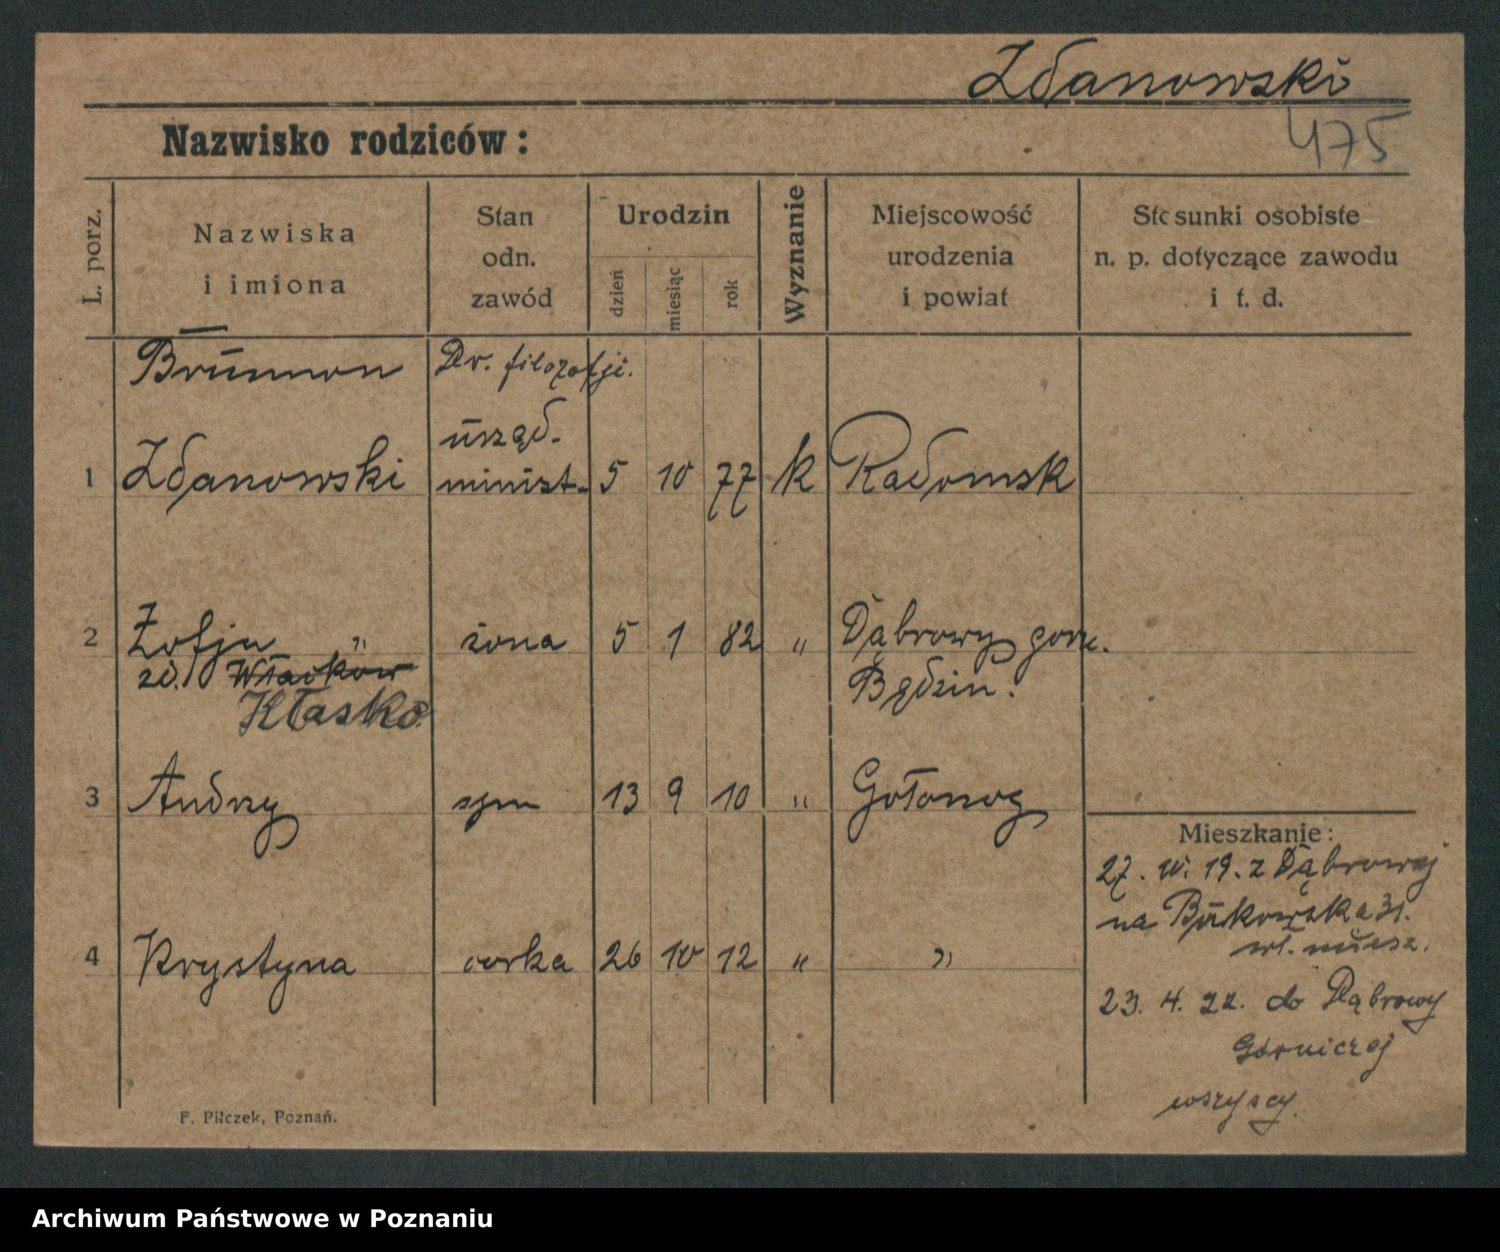 Zdanowski
475
Nazwisko rodziców:
L. porz.
Nazwiska
i imiona
Stan
odn.
zawód
Urodzin
dzień
miesiąc
rok
Wyznanie
Miejscowość
urodzenia
i powiat
Stosunki osobiste
n. p. dotyczące zawodu
i t. d.
Dr. filozofji.
urzęd.
1 Zdanowski minist. 5 10 77 k Radomsk
2 Zofja " żona 5 1 82 " Dąbrowy gorn.
zd. Będzin.
3 Andrzy syn 13 9 10 " Gołonog
Mieszkanie:
27. 10. 19. z Dąbrowej
na Bukowska 31.
4 Krystyna corka 26 10 12 " "
23. 4. 22. do Dąbrowy
Górniczej
wszyscy.
F. Pilczek, Poznań.
Archiwum Państwowe w Poznaniu